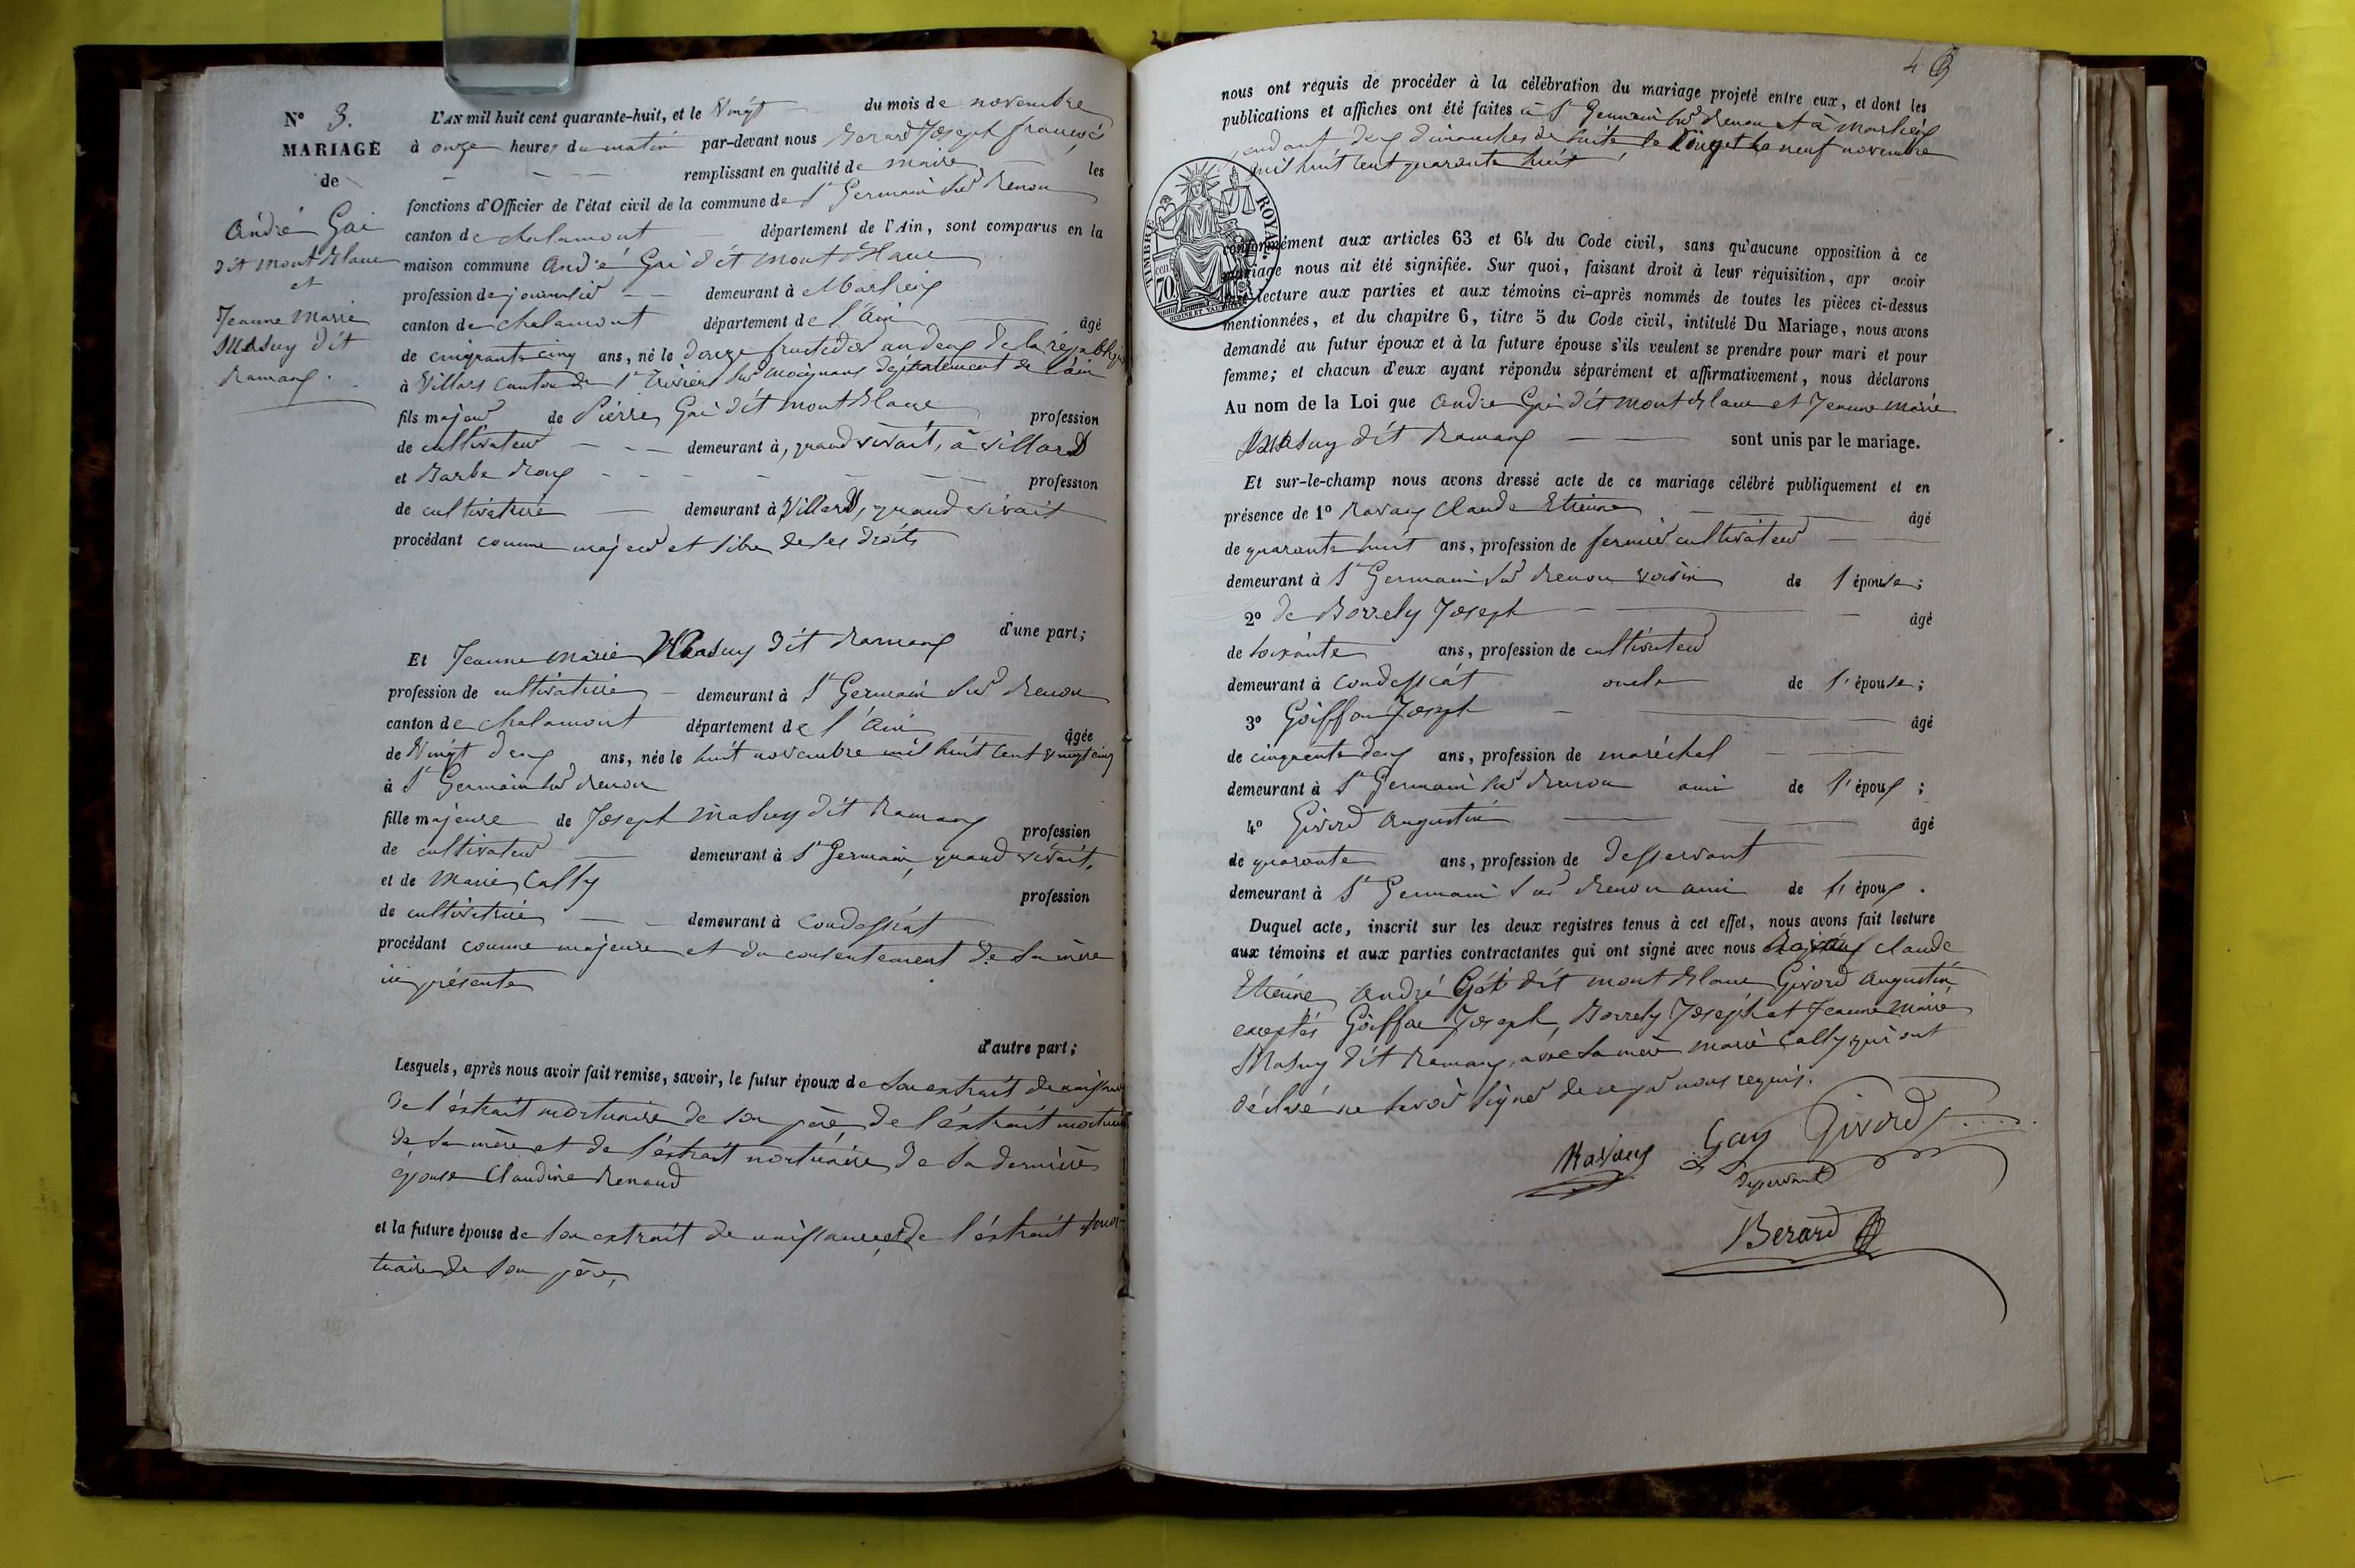 N° 3.
MARIAGE
de
André Gai
dit mont blanc
et
Jeanne Marie
Masuy dit
Ramans.
L'AN mil huit cent quarante-huit, et le vingt du mois de novembre
à onze heures du matin par-devant nous Berard Joseph françois
remplissant en qualité de maire les
fonctions d'Officier de l'état civil de la commune de St Germain sur Renon
canton de chalamont département de l'Ain, sont comparus en la
maison commune André Gai dit mont blanc
profession de journalier demeurant à Marlieux
canton de chalamont département de l'Ain âgé
de cinquante cinq ans, né le douze fructidor an deux de la république
à Villars canton de St Trivier sur Moignans département de l'ain
fils majeur de Pierre Gai dit mont blanc profession
de cultivateur demeurant à, quand vivait, à villard
et Barbe Roux profession
de cultivatrice demeurant à Villard, quand vivait
procédant comme majeur et libre de ses droits
d'une part;
Et Jeanne Marie Masuy dit Ramans
profession de cultivatrice demeurant à St Germain sur Renon
canton de chalamont département de l'Ain âgée
de vingt deux ans, née le huit novembre mil huit cent vingt cinq
à St Germain sur Renon
fille majeure de Joseph Masuy dit Ramans profession
de cultivateur demeurant à St Germain, quand vivait,
et de Marie Cally profession
de cultivatrice demeurant à Condessiat
procédant comme majeure et du consentement de sa mère
ici présente
d'autre part;
Lesquels, après nous avoir fait remise, savoir, le futur époux de son extrait de naissance
de l'éxtrait mortuaire de son père, de l'éxtrait mortuaire
de sa mère et de l'éxtrait mortuaire de sa dernière
épouse Claudine Renaud
et la future épouse de son extrait de naissance et de l'éxtrait mor-
tuaire de son père,
nous ont requis de procéder à la célébration du mariage projeté entre eux, et dont les
publications et affiches ont été faites à St Germain sur Renon et à Marlieux
pendant deux dimanches de suite le neuf novembre
mil huit cent quarante huit
TIMBRE ROYAL
70
conformément aux articles 63 et 64 du Code civil, sans qu'aucune opposition à ce
mariage nous ait été signifiée. Sur quoi, faisant droit à leur réquisition, apr avoir
lecture aux parties et aux témoins ci-après nommés de toutes les pièces ci-dessus
mentionnées, et du chapitre 6, titre 5 du Code civil, intitulé Du Mariage, nous avons
demandé au futur époux et à la future épouse s'ils veulent se prendre pour mari et pour
femme; et chacun d'eux ayant répondu séparément et affirmativement, nous déclarons
Au nom de la Loi que André Gai dit mont blanc et Jeanne Marie
Masuy dit Ramans sont unis par le mariage.
Et sur-le-champ nous avons dressé acte de ce mariage célébré publiquement et en
présence de 1° Ravaux Claude Etienne âgé
de quarante huit ans, profession de fermier cultivateur
demeurant à St Germain sur Renon voisin de l'épouse;
2° de Borrely Joseph âgé
de soixante ans, profession de cultivateur
demeurant à Condessiat oncle de l'épouse;
3° Goiffon Joseph âgé
de cinquante deux ans, profession de maréchal
demeurant à St Germain sur Renon ami de l'époux;
4° Givord Augustin âgé
de quarante ans, profession de desservant
demeurant à St Germain sur Renon ami de l'époux.
Duquel acte, inscrit sur les deux registres tenus à cet effet, nous avons fait lecture
aux témoins et aux parties contractantes qui ont signé avec nous Claude
Etienne, André Gai dit mont blanc Givord Augustin
exceptés Goiffon Joseph, Borrely Joseph et Jeanne Marie
Masuy dit Ramans, avec sa mère Marie Cally qui ont
déclaré ne savoir signer de ce par nous requis.
Ravaux Gay Givord
desservant
Berard